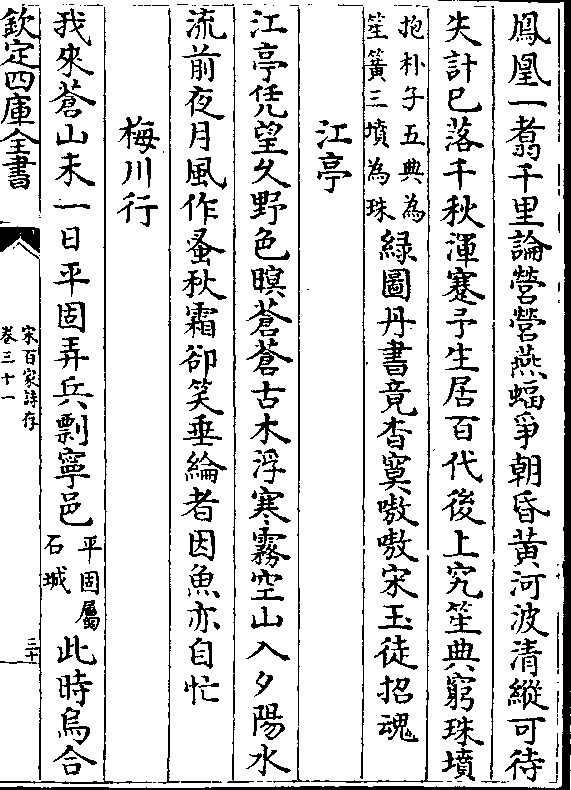 鳳凰一翥千里論營營燕蝠爭朝昏黄河波清縱可待
失計已落千秋渾蹇予生居百代後上究笙典窮珠墳
抱朴子五典為
笙簧三墳為珠
緑圖丹書竟杳冥嗷嗷宋玉徒招魂
江亭
江亭凭望久野色暝蒼蒼古木浮寒霧空山入夕陽水
流前夜月風作蚤秋霜卻笑垂綸者因魚亦自忙
梅川行
我來蒼山未一日平固弄兵剽寧邑
平固屬
石城
此時烏合
欽定四庫全書
宋百家詩存
卷三十一
三十